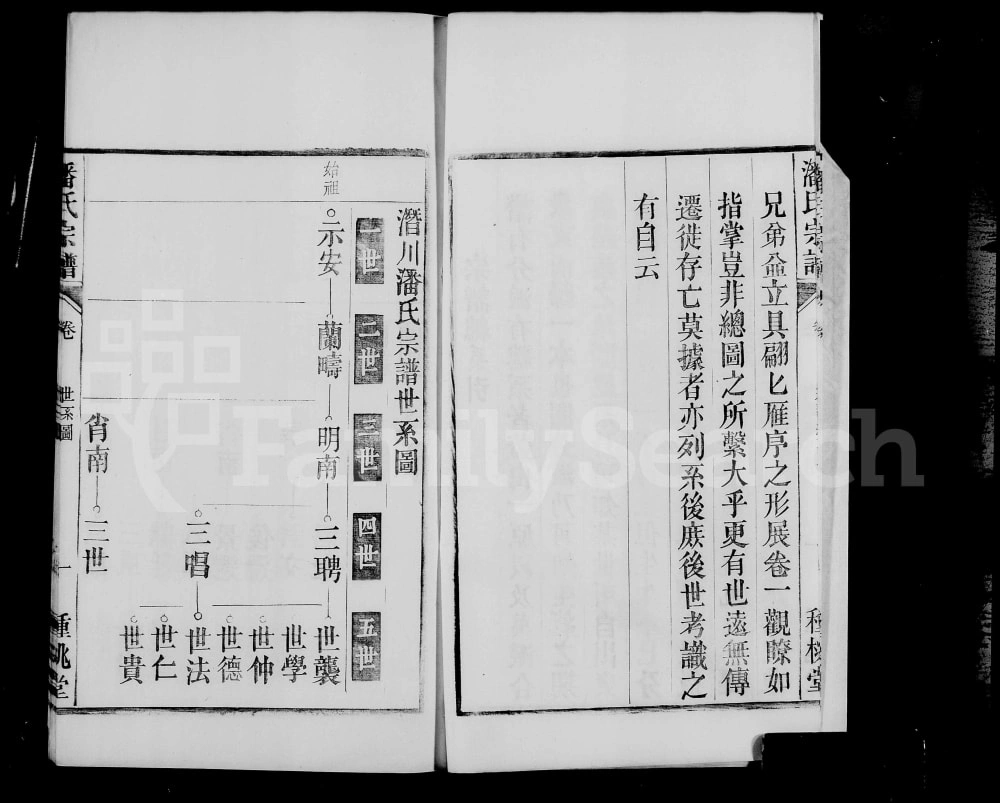 兄弟並立具翩匕雁序之形展卷一觀瞭如
指掌豈非總圖之所繫大乎更有世遠無傳
遷徙存亡莫據者亦列系後庻後世考識之
有自云
潘氏宗譜
潛川潘氏宗譜世系圖
一世
二世
三世
四世
五世
始祖
示安
蘭疇
明南
三聘
世襲
世學
世仲
世德
三唱
世法
世仁
世貴
肖南
三世
潘氏宗譜
卷
世系圖
一
種桃堂
FamilySearch